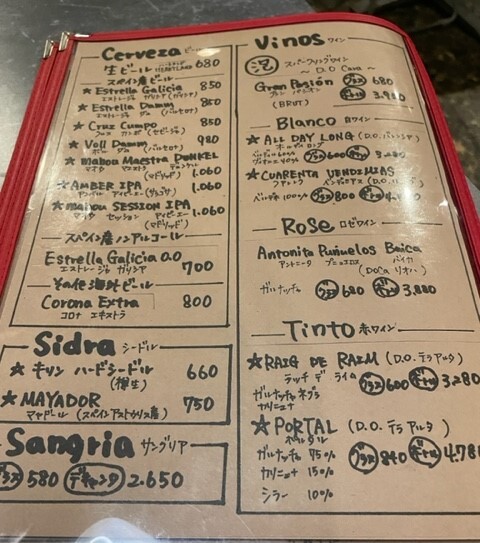 Cerveza ビール
生ビール HEARTLAND 680
スペイン産ビール
★ Estrella Galicia 850
エストレージャ ガリシア (ガリシア)
★ Estrella Damm 850
エストレージャ ダム (バルセロナ)
★ Cruz Campo 850
クルス カンポ (セビージャ)
★ Voll Damm 980
ボル ダム (バルセロナ)
★ mahou Maestra DUNKEL 1.060
マオウ マエストラ ドゥンケル
(マドリッド)
★ AMBER IPA 1.060
アンバー アイピーエー
★ mahou SESSION IPA 1.060
マオウ セッション アイピーエー
(マドリッド)
スペイン産ノンアルコール
Estrella Galicia 0.0 700
エストレージャ ガリシア
その他海外ビール
Corona Extra 800
コロナ エキストラ
Sidra シードル
★ キリン ハードシードル 660
(樽生)
★ MAYADOR 750
マヤドール (スペインアストゥリアス産)
Sangria サングリア
グラス 580 デキャンタ 2.650
Vinos ワイン
泡 スパークリングワイン
～ D.O Cava ～
Gran Pasión グラス 680
グラン パシオン
(BRUT) ボトル
Blanco 白ワイン
★ ALL DAY LONG (D.O. バレンシア)
オールデイロング
グラス 600 ボトル 3,280
★ CUARENTA VENDIMIAS
クアレンタ ベンディミアス (D.O.
100% グラス 800 ボトル
Rose ロゼワイン
Antonita Puñuelos Baica
アントニータ プニュエロス バイカ
(DOCa リオハ)
ガルナッチャ グラス 680 ボトル 3,880
Tinto 赤ワイン
★ RAIG DE RAIM (D.O. テラアルタ)
ラッチ デ ライム グラス 600 ボトル 3,280
ガルナッチャネグラ
カリニェナ
★ PORTAL (D.O. テラ アルタ)
ポルタル
ガルナッチャ 75% グラス 840 ボトル 4.780
カリニェナ 15%
シラー 10%